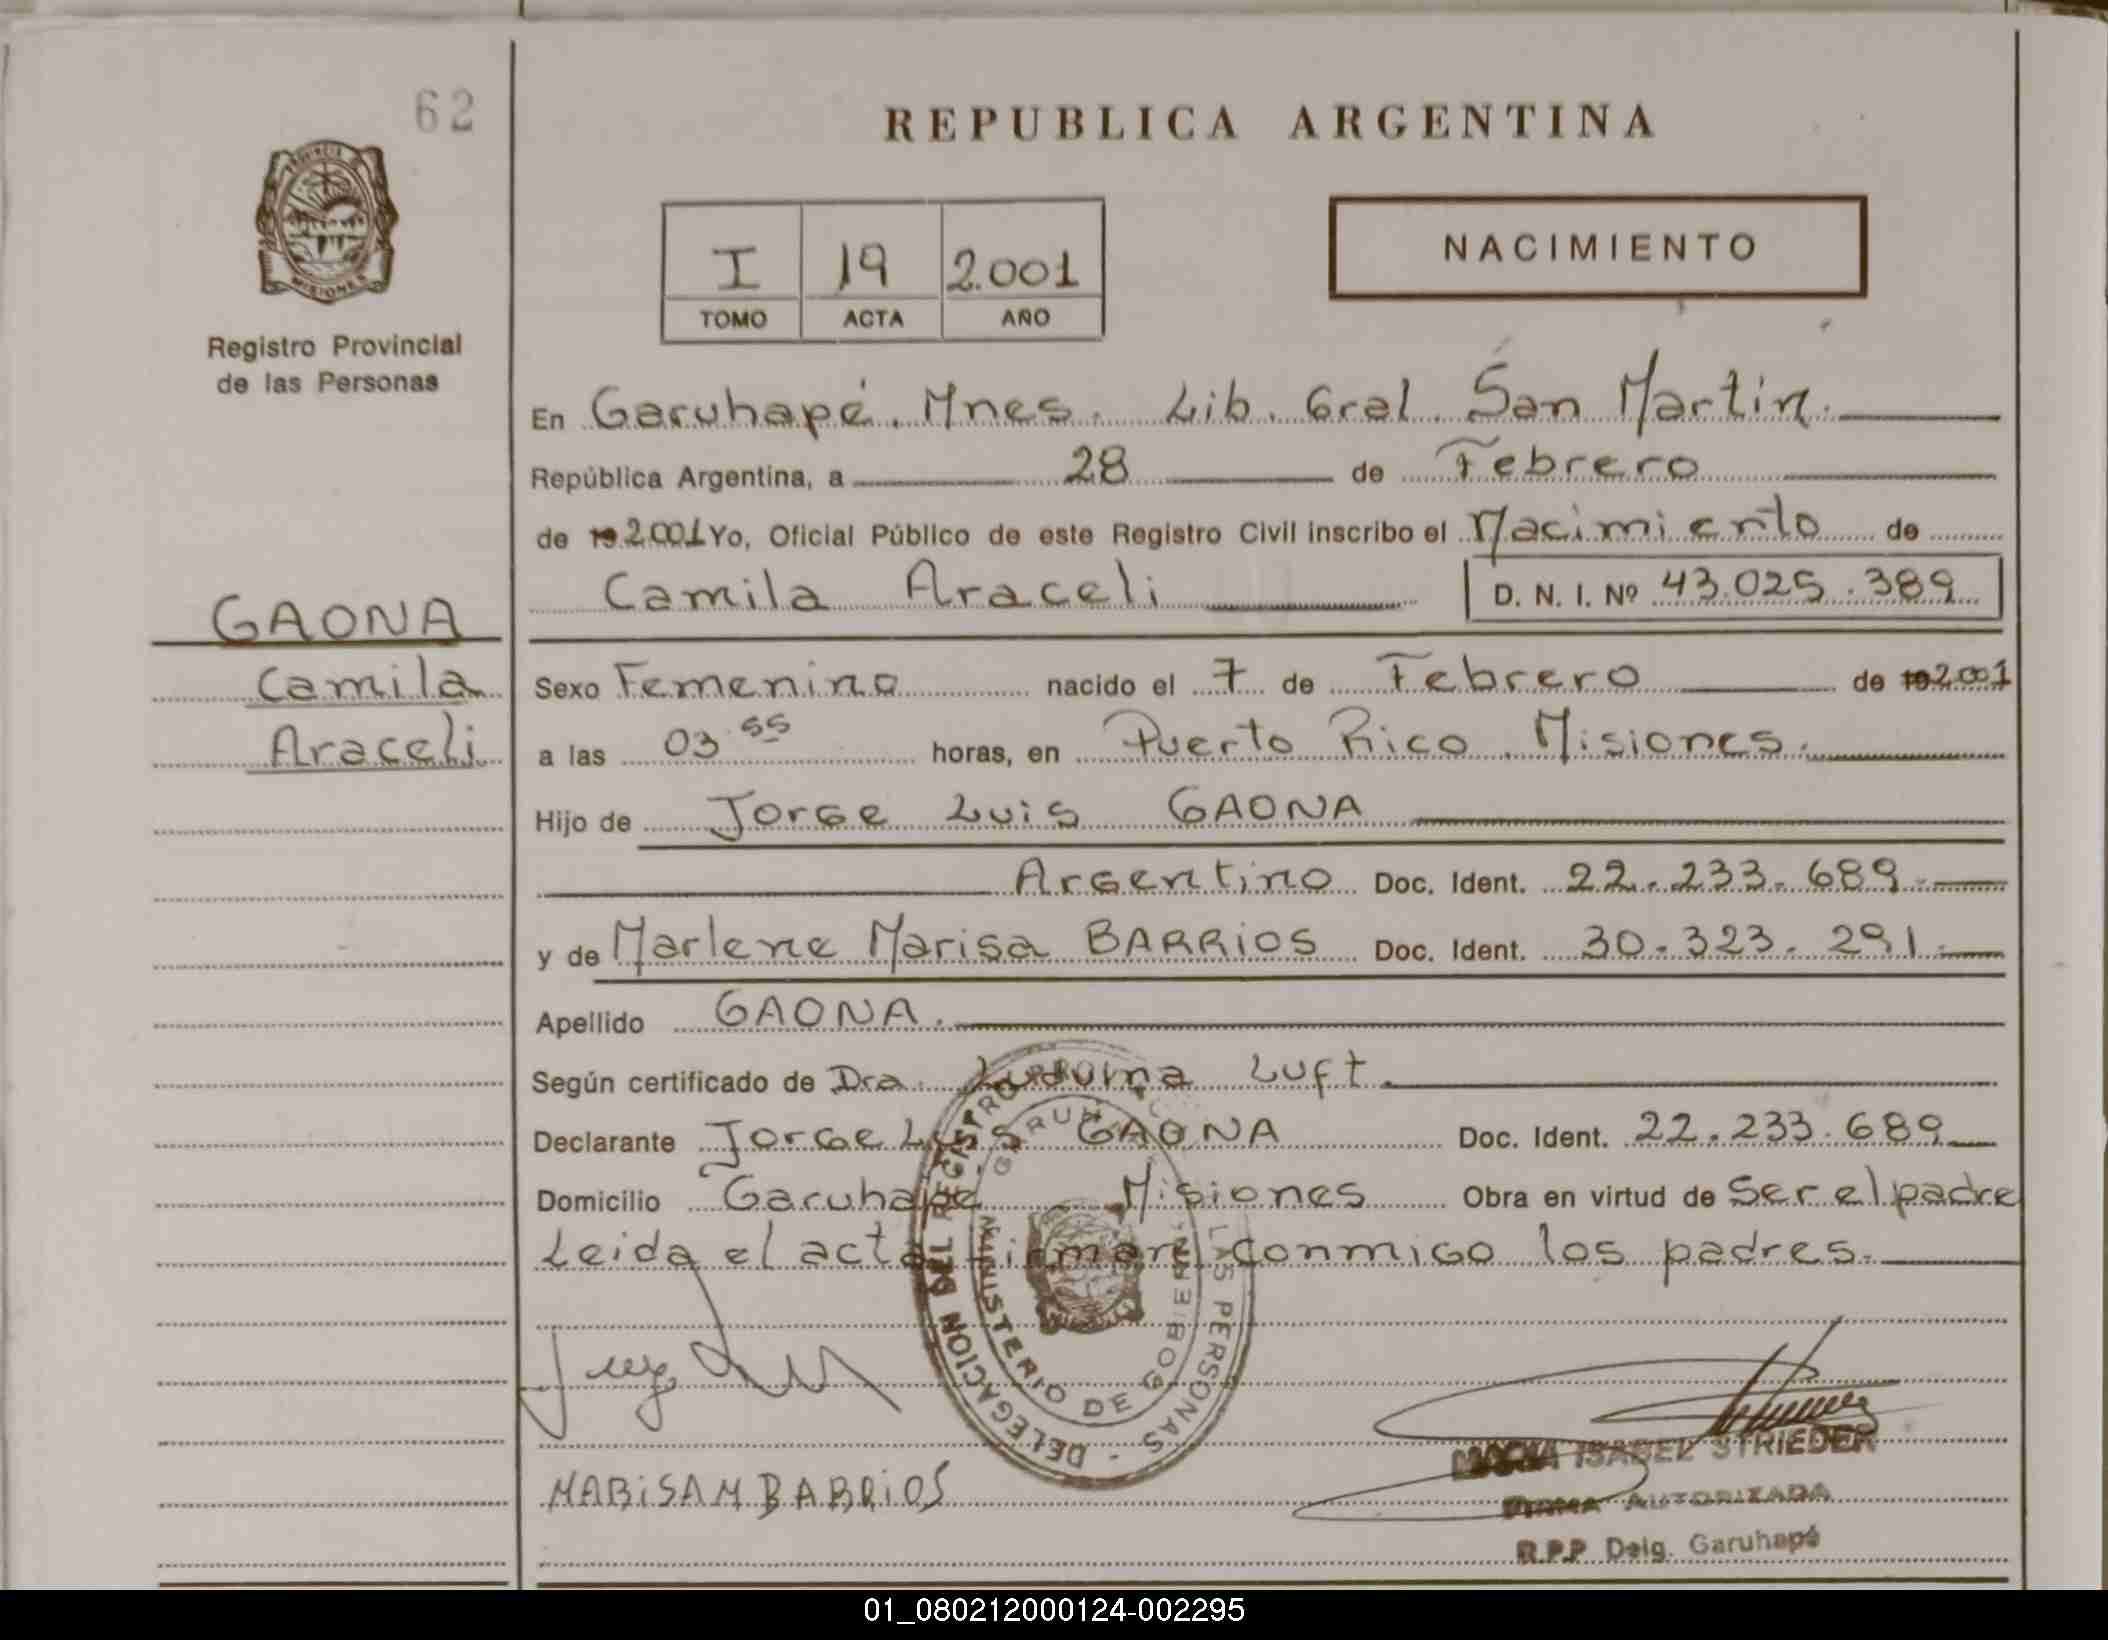 62
REPUBLICA ARGENTINA
PROVINCIA DE MISIONES
Registro Provincial
de las Personas
I 19 2.001
TOMO ACTA AÑO
NACIMIENTO
En Garuhapé. Mnes. Lib. Gral. San Martin.
República Argentina, a 28 de Febrero
de 19 2.001 Yo, Oficial Público de este Registro Civil inscribo el Nacimiento de
Camila Araceli D. N. I. Nº 43.025.389
GAONA
Camila
Araceli
Sexo Femenino nacido el 7 de Febrero de 19 2.001
a las 03 55 horas, en Puerto Rico. Misiones.
Hijo de Jorge Luis GAONA
Argentino Doc. Ident. 22.233.689.
y de Marlene Marisa BARRIOS Doc. Ident. 30.323.291.
Apellido GAONA.
Según certificado de Dra. Luft
Declarante Jorge Luis GAONA Doc. Ident. 22.233.689
Domicilio Garuhapé Misiones Obra en virtud de Ser el padre
Leida el acta firman conmigo los padres.
DELEGACION DEL REGISTRO LAS PERSONAS
MINISTERIO DE GOBIERNO
MARISA M BARRIOS
MARIA ISABEL STRIEDER
FIRMA AUTORIZADA
R.P.P Delg. Garuhapé
01_080212000124-002295